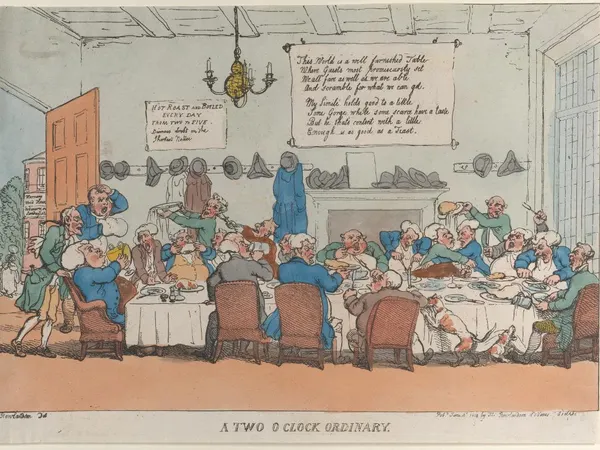 This World is a well furnished Table
Where Guests most promiscuously set
We all fare as well as we are able
And Scramble for what we can get.
My Simile holds good to a
Some Gorge while some scarce have a taste
But he thats content with a little
Enough is as good as a Feast.
HOT ROAST AND BOILED
EVERY DAY
FROM TWO TO FIVE
Dinners drest
Shortest Notice
Rowlandson
A TWO O CLOCK ORDINARY.